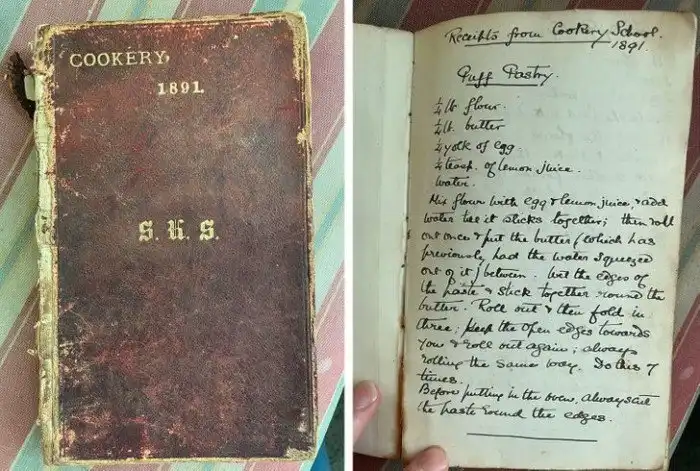 COOKERY,
1891.
S. H. S.
Receipts from Cookery School.
1891.
Puff Pastry.
¼ lb flour.
¼ lb. butter
¼ yolk of egg.
¼ teasp. of lemon juice.
Water.
Mix flour with egg & lemon juice, & add
water till it sticks together; then roll
out once & put the butter (which has
previously had the water squeezed
out of it) between. Wet the edges of
the paste & stick together round the
butter. Roll out & then fold in
three; keep the open edges towards
you & roll out again; always
rolling the same way. Do this 7
times.
Before putting in the oven, always cut
the paste round the edges.